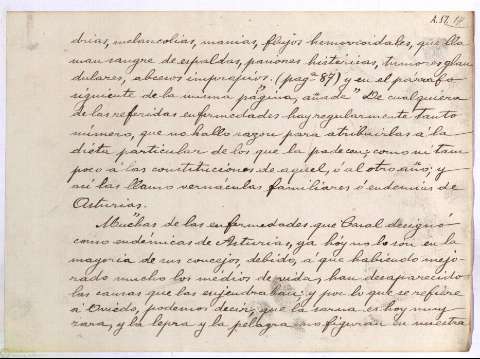 A.57. 14
drias, melancolias, manias, flujos hemorroidales, que lla-
man sangre de espaldas, pasiones histéricas, tumores glan-
dulares, abcesos impropios. (pagª 87) y en el párrafo
siguiente de la misma página, añade "De cualquiera
de las referidas enfermedades hay regularmente tanto
número, que no hallo razon para atribuirlas á la
dieta particular de los que la padecen; como ni tam
poco á las constituciones de aquel, ó al otro año; y
asi las llamo vernáculas familiares ó endemias de
Asturias.
Muchas de las enfermedades que Casal designó
como endémicas de Asturias, ya hoy no lo son en la
mayoria de sus concejos, debido, á que habiendo mejo-
rado mucho los médios de vida, han desaparecido
las causas que las enjendraban; y por lo que se refiere
á Oviedo, podemos decir, que la sarna es hoy muy
rara, y la lepra y la pelagra no figuran en nuestra